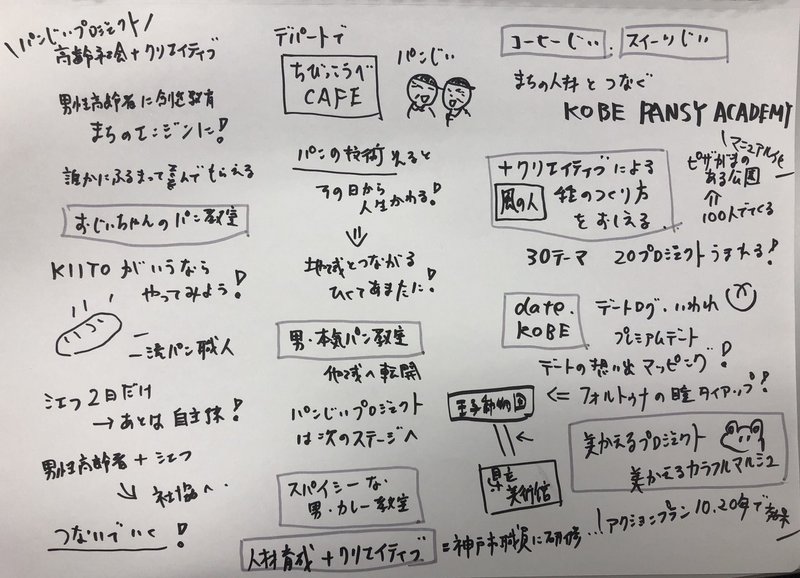 パンじぃプロジェクト
高齢社会+クリエイティブ
男性高齢者に創造教育
まちのエンジンに!
誰かにふるまって喜んでもらえる
おじいちゃんのパン教室
KIITOがいうなら
やってみよう!
一流パン職人
シェフ2日だけ
→あとは自主体!
男性高齢者+シェフ
社協へ
つないでいく!
デパートで
ちびっこうべ
CAFE
パンじぃ
パンの技術えると
その日から
人生かわる!
地域とつながる
ひくてあまたに!
男・本気パン教室
他域へ転開
パンじぃプロジェクト
は次のステージへ
スパイシーな
男・カレー教室
人材育成+クリエイティブ
=神戸市職員に研修…
コーヒーじぃ スイーツじぃ
まちの人材とつなぐ
KOBE PANSY ACADEMY
マニュアル化
ピザがまの
ある公園
100人でつくる
+クリエイティブによる
風の人
種のつくり方
をおしえる
30テーマ 20プロジェクトうまれる!
date.
KOBE
デートログ・いわれ
プレミアムデート
デートの想い出マッピング!
⇐フォルトゥナの瞳タイアップ!
王子動物園
県立
美術館
美かえるプロジェクト
美かえるカラフルマルシェ
アクションプラン10.20年で